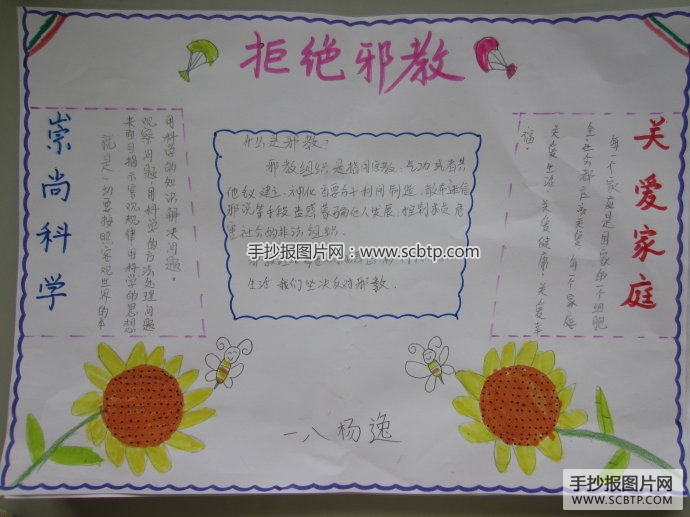 拒绝邪教
崇尚科学
就是一切要按照客观世界的本
来面目揭示客观规律用科学的思想
观察问题用科学的方法处理问题
用科学的知识解决问题。
什么是邪教?
邪教组织是指冒用宗教、气功或者其
他名义建立、神化首要分子利用制造、散布迷信
邪说等手段蛊惑蒙骗他人发展、控制成员危
害社会的非法组织。
生活我们坚决反对邪教.
关爱家庭
每一个家庭是国家的一个细胞
全社会都应该关爱每个家庭
关爱生活、关爱健康、关爱幸
福.
手抄报图片网:www.scbtp.com
一八杨逸
手抄报图片网
www.SCBTP.COM